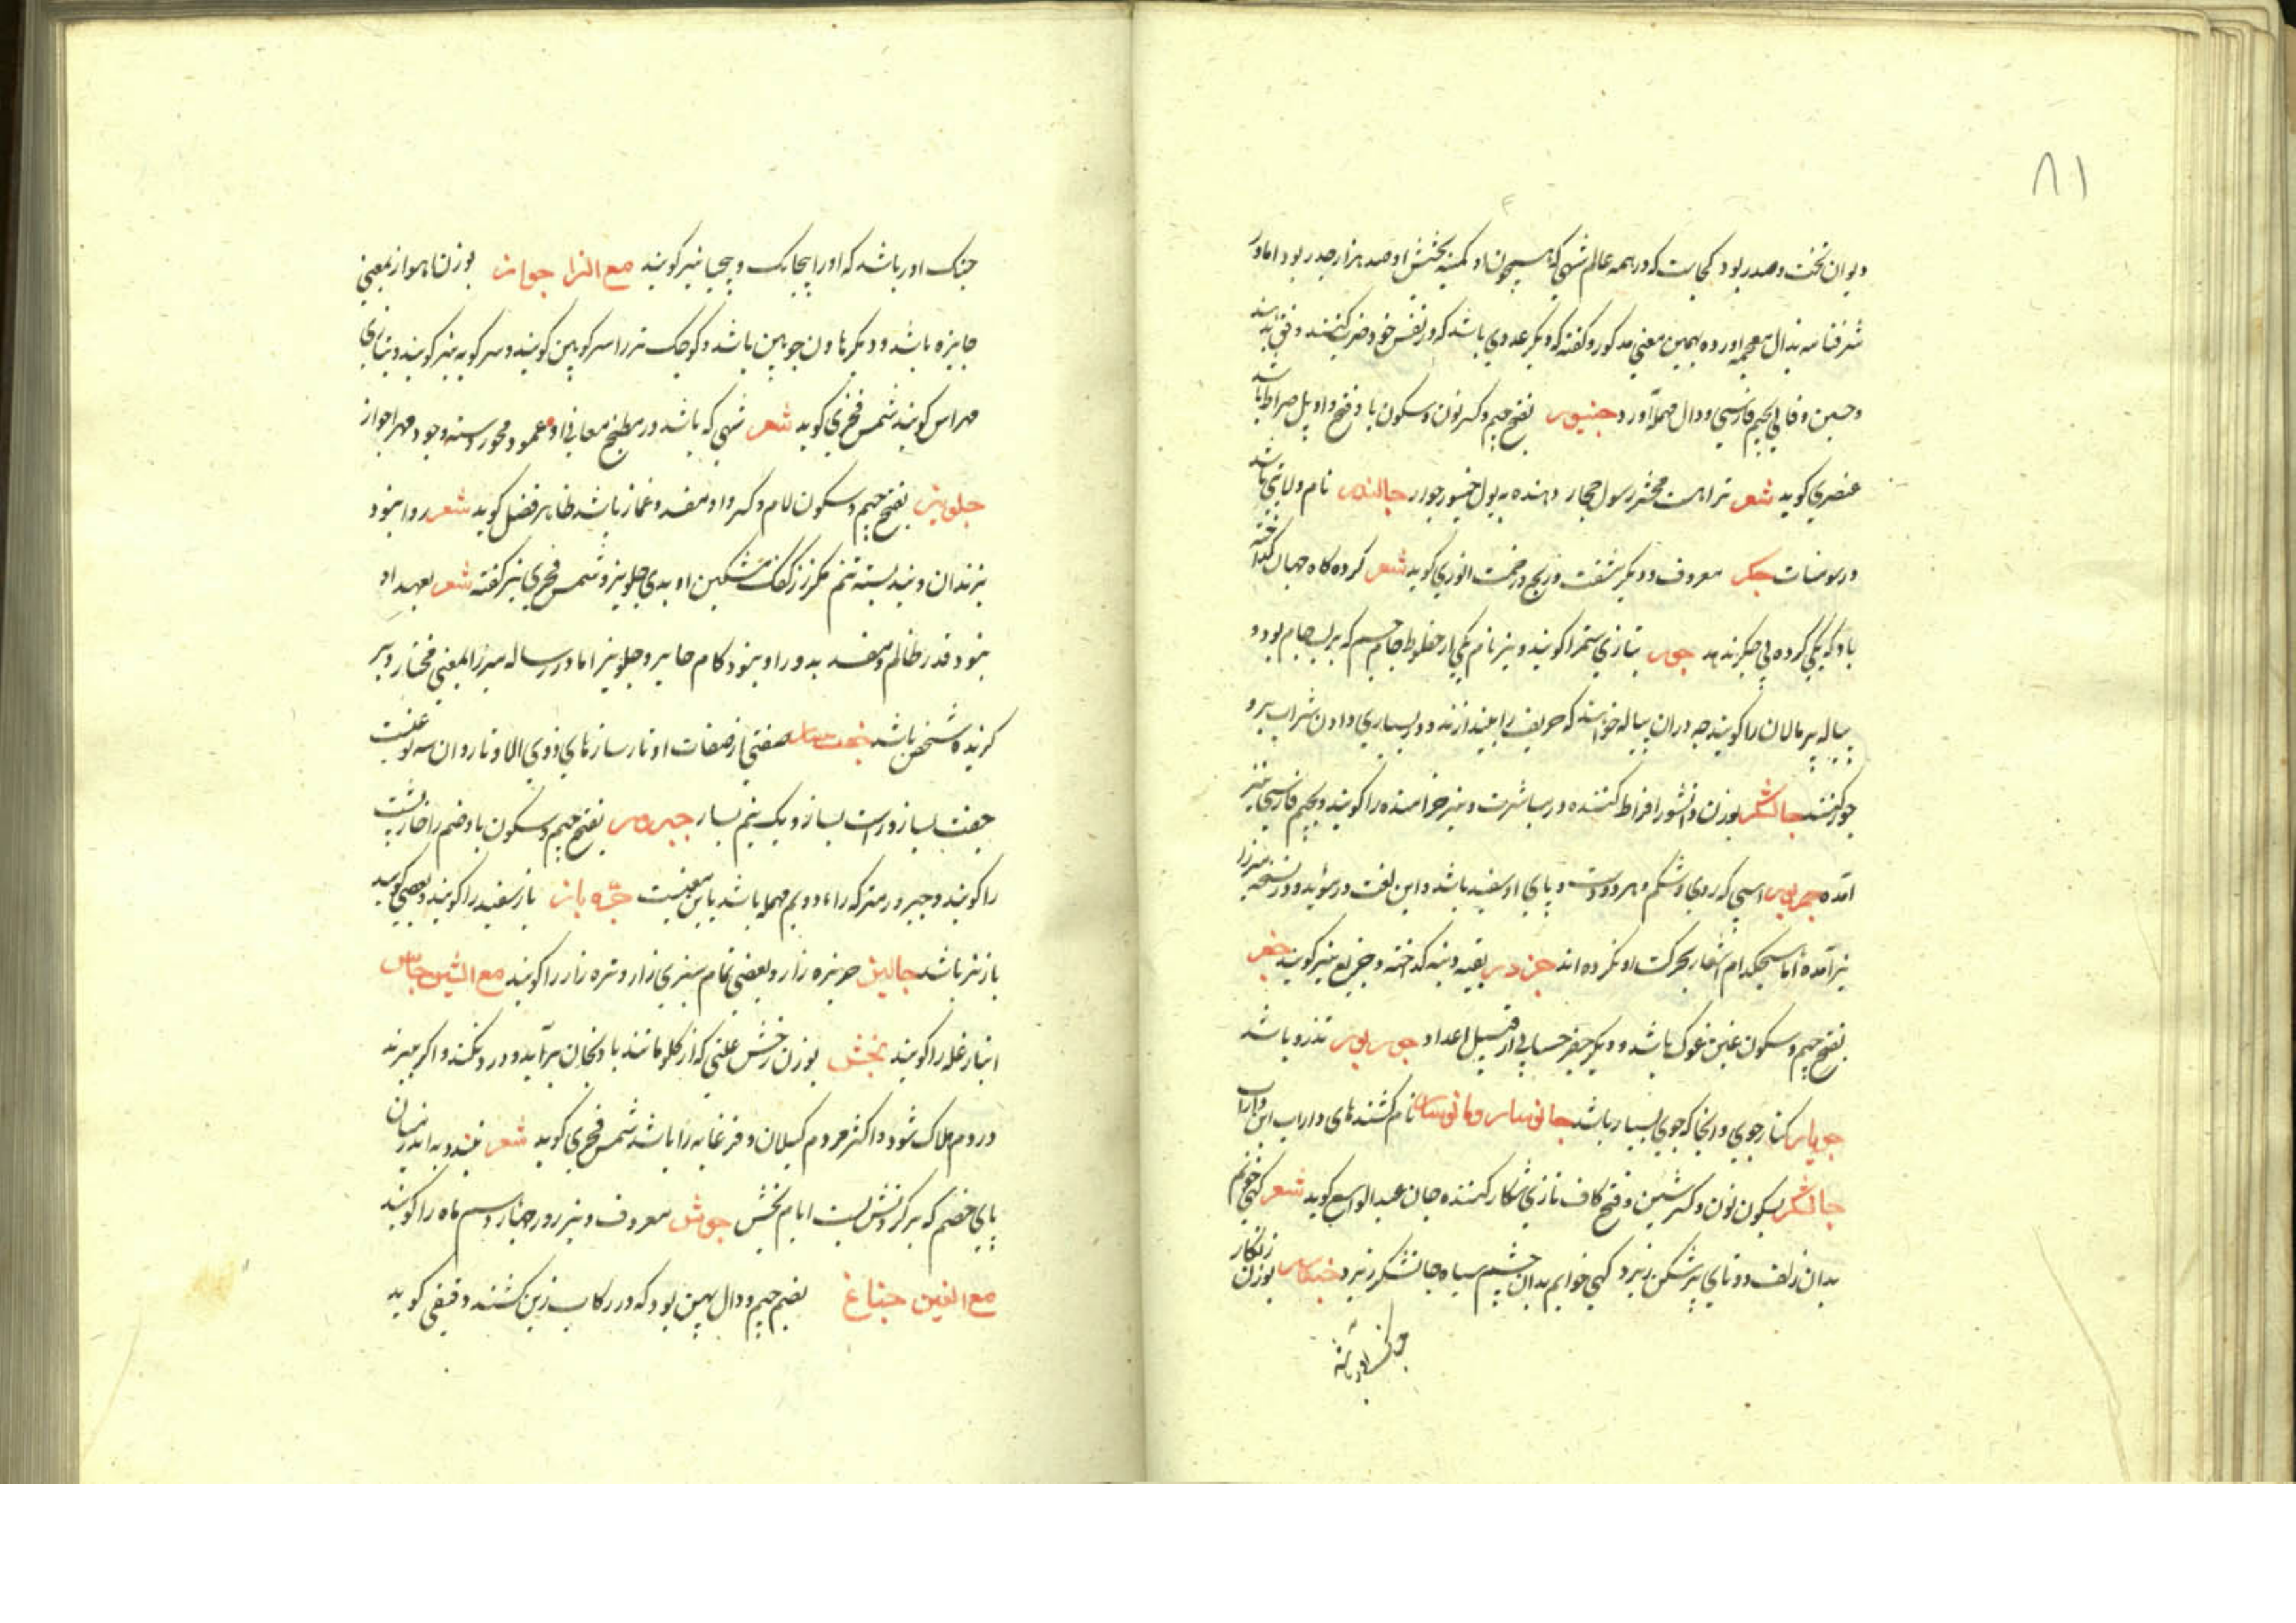 ۸۱
دیوان تخت و صدر بود کجاست که در همه عالم شهی که همچون او کمینه بخشش او صد هزار جدر بود اما در
شرفنامه بذال معجمه اورده بهمین معنی مذکور و گفته که و دیگر عددی باشد که در نفس خود ضرب کنند
و حسین وفائی بجیم فارسی و دال مهمله آورده جنیور بفتح جیم و کسر نون و سکون یا و فتح واو پل صراط باشد
عنصری کوید شعر ترا هست محشر رسول حجاز دهنده به پول جنیور جواز جالندر نام ولایتی باشد
در سومنات جکر معروف و دیگر مشقت و رنج و زحمت انوری کوید شعر کرده کاه جهان
باد که یکی کرده بی جکر ندهد جور بتازی ستم را کویند و نیز نام یکی از خطوط جام جم که بر لب جام بود و
پیاله پر مالامال را کویند چه دران پیاله خواهند که حریف را بیندازند و در بسیاری دادن شراب برو
جور کنند جالشکر بوزن دانشور افراط کننده در مباشرت و نیز خرامنده را کویند و بجیم فارسی نیز
آمده جرمور اسبی که روی و شکم و هر دو دست و پای او سفید باشد و این لغت در مؤید و در نسخه میرزا
نیز آمده اما هیچکدام اشعار بحرکت او نکرده اند جزدر بقیه دنبه کداخته و جزبغ نیز کویند جغر
بفتح جیم و سکون غین غوک باشد و دیگر جفر حسابی از قبیل اعداد جورپور تذرو باشد
جویبار کنار جوی و انجا که جوی بسیار باشد جانوسار و مانوسار نام کشنده های داراب ابن داراب
جانشکر بسکون نون و کسر شین و فتح کاف تازی شکار کننده جان عبدالواسع کوید شعر کهی خونم
بدان زلف دوتای پر شکن ریزد کهی خوابم بدان چشم سیاه جانشکر ریزد جنکار بوزن زنکار
جنک اور باشد که او را پیچاپک و پیچپا نیز کویند مع الزا جواز بوزن ناهموار بمعنی
جایزه باشد و دیگر هاون چوبین باشد و کوچک تر را سرکوبین کویند و سرکوبه نیز کویند و بتازی
مهراس کویند شمس فخری کوید شعر شهی که باشد در مطبخ معانی او عمود محور و دسته وجود مهر جواز
جلویز بفتح جیم و سکون لام و کسر واو مفسد و غماز باشد طاهر فضل کوید شعر روا نبود
بزندان و بند بسته تنم مکر ز زلفک مشکین او بدی جلویز و شمس فخری نیز کفته شعر بعهد او
نبود قدر ظالم و مفسد بدور او نبود کام جابر و جلویز اما در رساله میرزا بمعنی مختار و بر
کزیده شخص باشد جفت ساز صفتی از صفات اوتار سازهای ذوی الاوتار و ان سه نوعست
جفت ساز و راست ساز و یک نیم ساز جبروز بفتح جیم و سکون با و ضم را خارپشت
را کویند و جیرور متر که راء دویم مهمله باشد باین معنیست جره باز باز سفید را کویند و بعضی کویند
باز نر باشد جالیز خربزه زار و بعضی تمام سبزی زار و تره زار را کویند مع الشین جاش
انبار غله را کویند جخش بوزن رخش علتی که از کلو مانند بادنجان برآید و درد نکند و اکر ببرند
در دم هلاک شود و اکثر مردم کیلان و فرغانه را باشد شمس فخری کوید شعر
پای خصم که بر کردنش بست ایام جخش جوش معروف و نیز روز چهاردهم ماه را کویند
مع الغین جناغ بضم جیم و دال پهین بود که در رکاب زین کشند دقیقی کوید